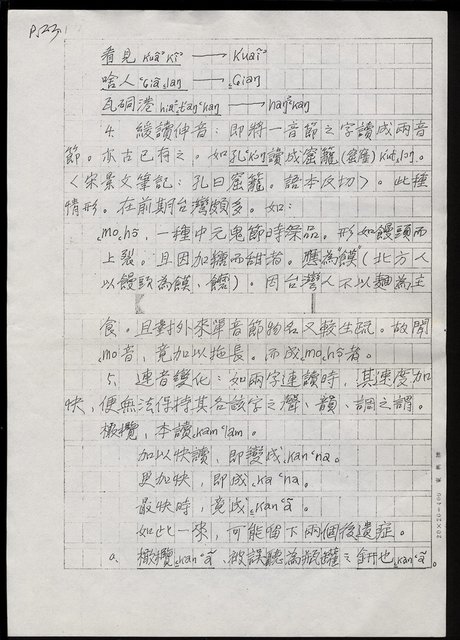 P.523
看見 kuãᵓ kĩᵓ → kuaiᵓ
啥人 ᶜsiãᵓ ₌laŋ → ₌siaŋ
瓦硐港 hiaᵓ taŋᵓ ᶜkaŋ → haŋᵓ ᶜkaŋ
4. 緩讀伸音:即將一音節之字讀成兩音
節。亦古已有之。如孔ᶜk'oŋ讀成窟窿(窰窿) k'ut₌loŋ。
〈宋景文筆記:孔曰窟籠。語本反切〉。此種
情形。在前期台灣頗多。如:
₌mo₌hõ,一種中元鬼節時祭品。形如饅頭而
上裂。且因加糖而甜者。應為"饃"(北方人
以饅頭為饃、饝)。因台灣人不以麵為主
食。且對外來單音節物名又較生疏。故聞
₌mo音,竟加以拖長。而成₌mo₌hõ者。
5. 連音變化:如兩字連讀時,其速度加
快,便無法保持其各該字之聲、韻、調之謂。
橄欖,本讀ᶜkamᶜlam。
加以快讀,即變成₌kanᶜna。
更加快,即成₌kaᶜna。
最快時,竟成₌kanᶜã。
如此一來,可能留下兩個後遺症。
a. 橄欖₌kanᶜã,被誤聽為瓶罐之矸也₌kanᶜã。
20×20=400